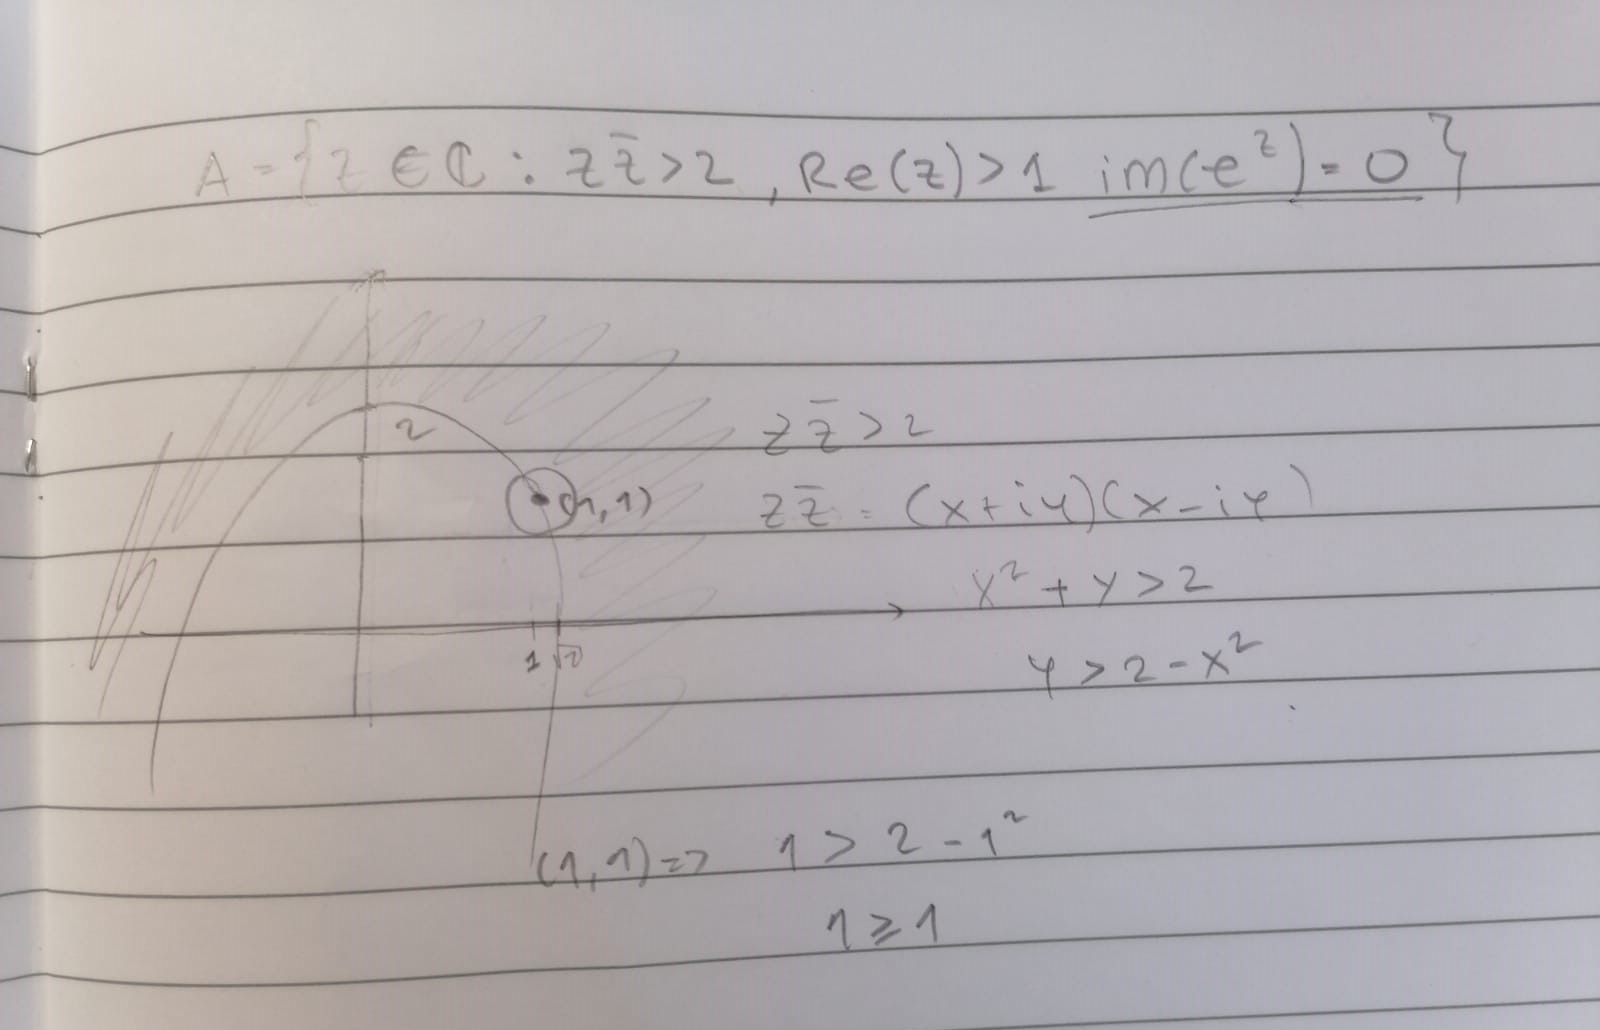 A = {z ∈ ℂ : z z̄ > 2, Re(z) > 1 im(e^z) = 0}
2
(1,1)
1 √2
z z̄ > 2
z z̄ = (x+iy)(x-iy)
x² + y > 2
y > 2 - x²
(1,1) => 1 > 2 - 1²
1 ≥ 1